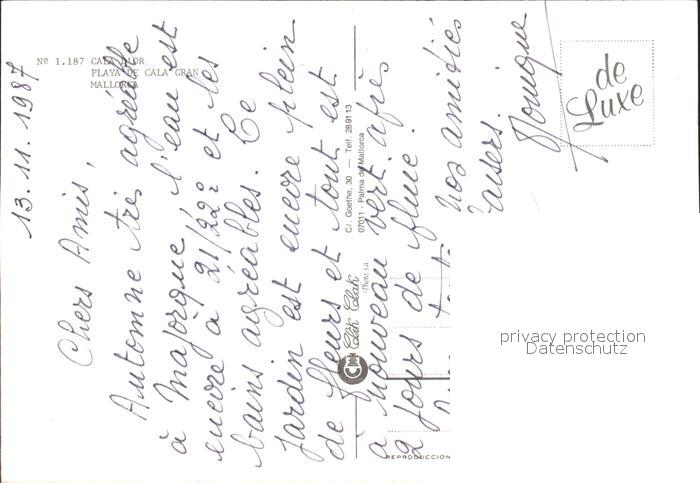 Nº 1.187 CALA D'OR
PLAYA DE CALA GRAN
MALLORCA
13.11.1987
Chers Amis,
Automne très agréable
à Majorque, l'eau est
encore à 21/22º et les
bains agréables. Le
jardin est encore plein
de fleurs et tout est
à nouveau vert après
2 jours de pluie.
Nos amitiés
Baisers.
Monique
de
Luxe
C/. Goethe, 30 — Telf. 289113
07011 - Palma de Mallorca
Clik Clak
Photo s.a.
REPRODUCCION
privacy protection
Datenschutz